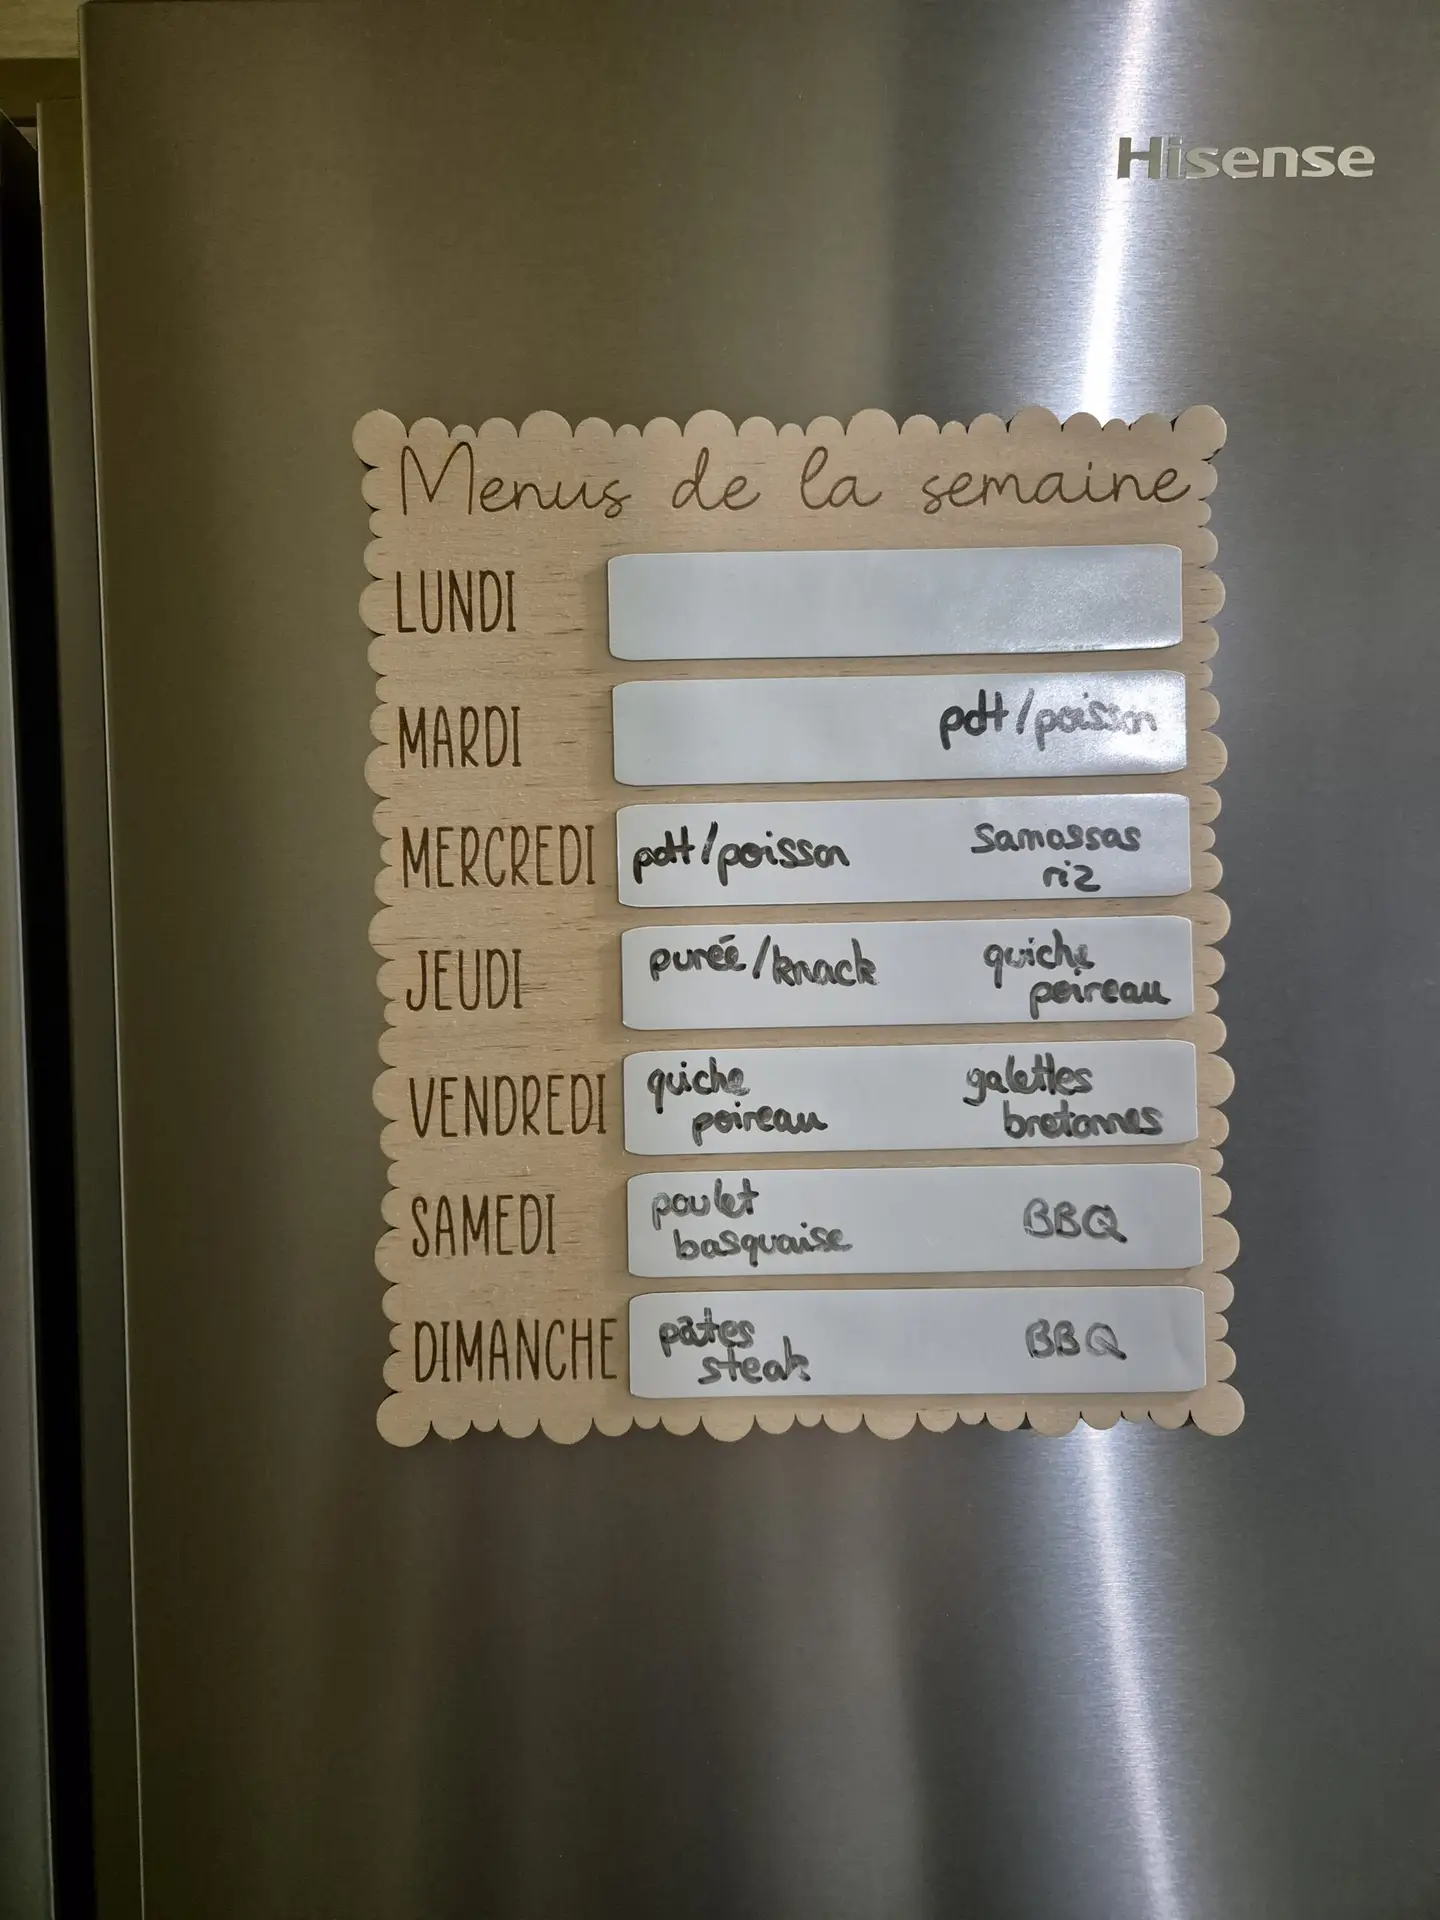 Hisense
Menus de la semaine
LUNDI
MARDI
pdt/poisson
MERCREDI
pdt/poisson
samossas
riz
JEUDI
purée/knack
quiche
poireau
VENDREDI
quiche
poireau
galettes
bretonnes
SAMEDI
poulet
basquaise
BBQ
DIMANCHE
pâtes
steak
BBQ